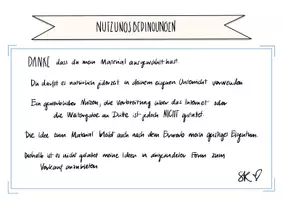 NUTZUNGSBEDINGUNGEN
DANKE dass du mein Material ausgewählt hast.
Du darfst es natürlich jederzeit in deinem eigenen Unterricht verwenden
Ein gewerblicher Nutzen, die Verbreitung über das Internet oder
die Weitergabe an Dritte ist jedoch NICHT gestattet
Die Idee zum Material bleibt auch nach dem Erwerb mein geistiges Eigentum.
Deshalb ist es nicht gestattet meine Ideen in abgeänderter Form zum
Verkauf anzubieten
SK ♡